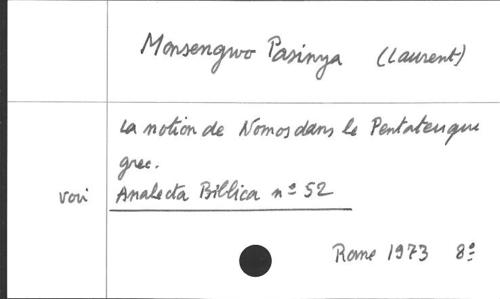 Monsengwo Pasinya (Laurent)
La notion de Nomos dans le Pentateuque
grec.
voir Analecta Biblica nº 52
Rome 1973 8º